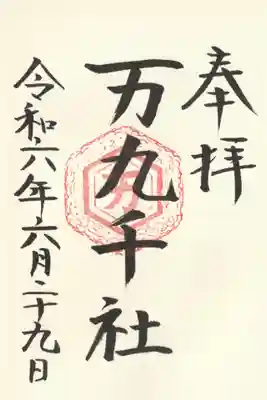 奉拝
万九千社
令和六年六月二十九日